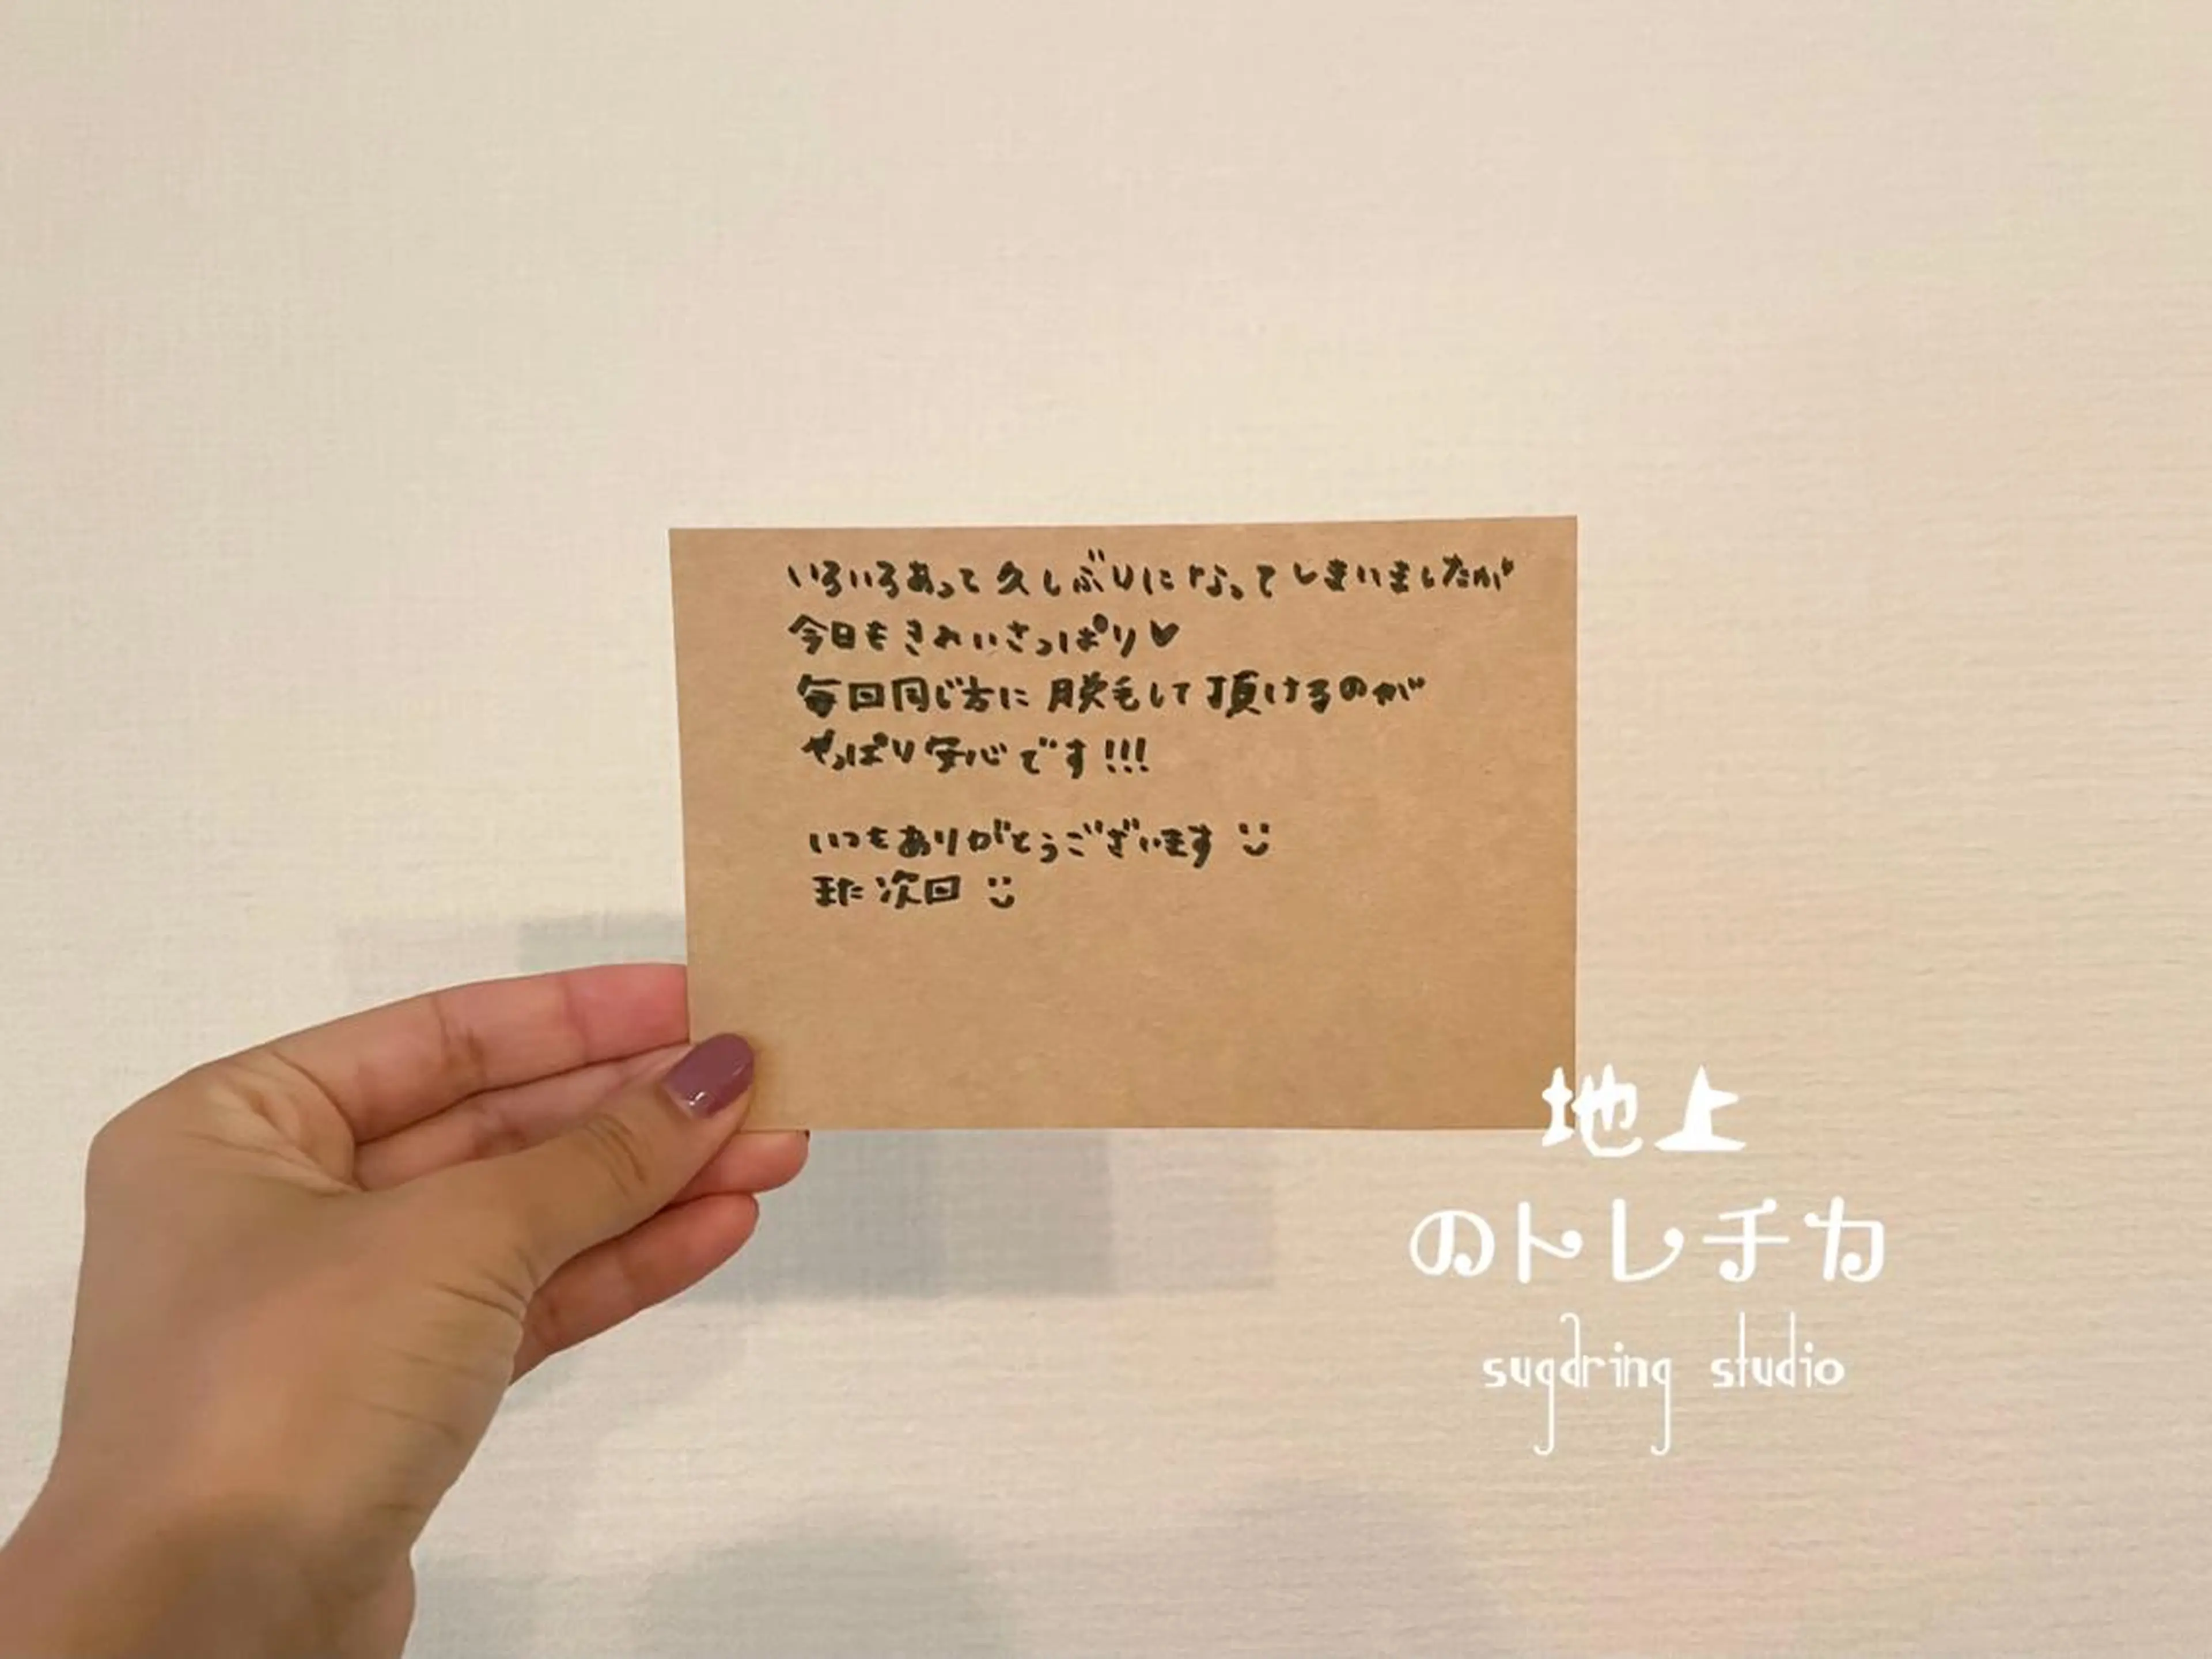 いろいろあって久しぶりになってしまいましたが
今日もきれいさっぱり♥
毎回同じ方に脱毛して頂けるのが
やっぱり安心です!!!
いつもありがとうございます
また次回
地上
のトレチカ
sugaring studio